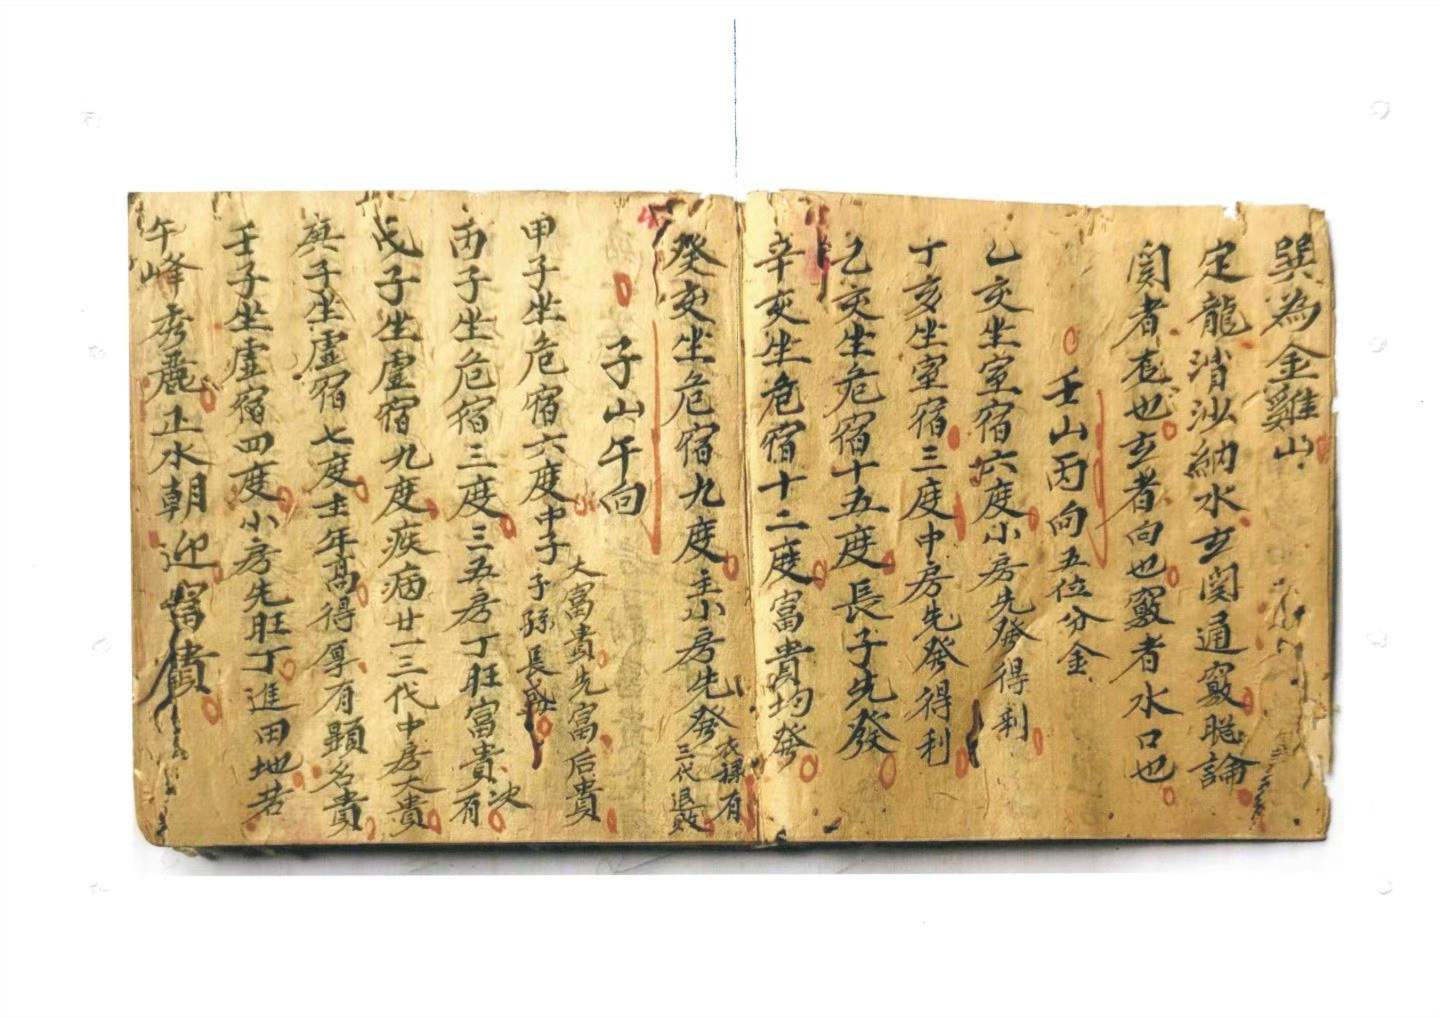 巽為金雞山
定龍消沙納水玄関通竅聴論
関者套也玄者向也竅者水口也
壬山丙向五位分金
乙亥坐室宿六度小房先發得利
丁亥坐室宿三度中房先發得利
己亥坐危宿十五度長子先發
辛亥坐危宿十二度富貴均發
癸亥坐危宿九度主小房先發
衣禄有
三代退敗
子山午向
甲子坐危宿六度中子
大富貴先富后貴
子孫長盛
丙子坐危宿三度三五房丁旺富貴有次
戊子坐虚宿九度疾病廿一三代中房大貴
庚子坐虚宿七度主年高得厚有顕名貴
壬子坐虚宿四度小房先旺丁進田地若
午峰秀麗正水朝迎富貴